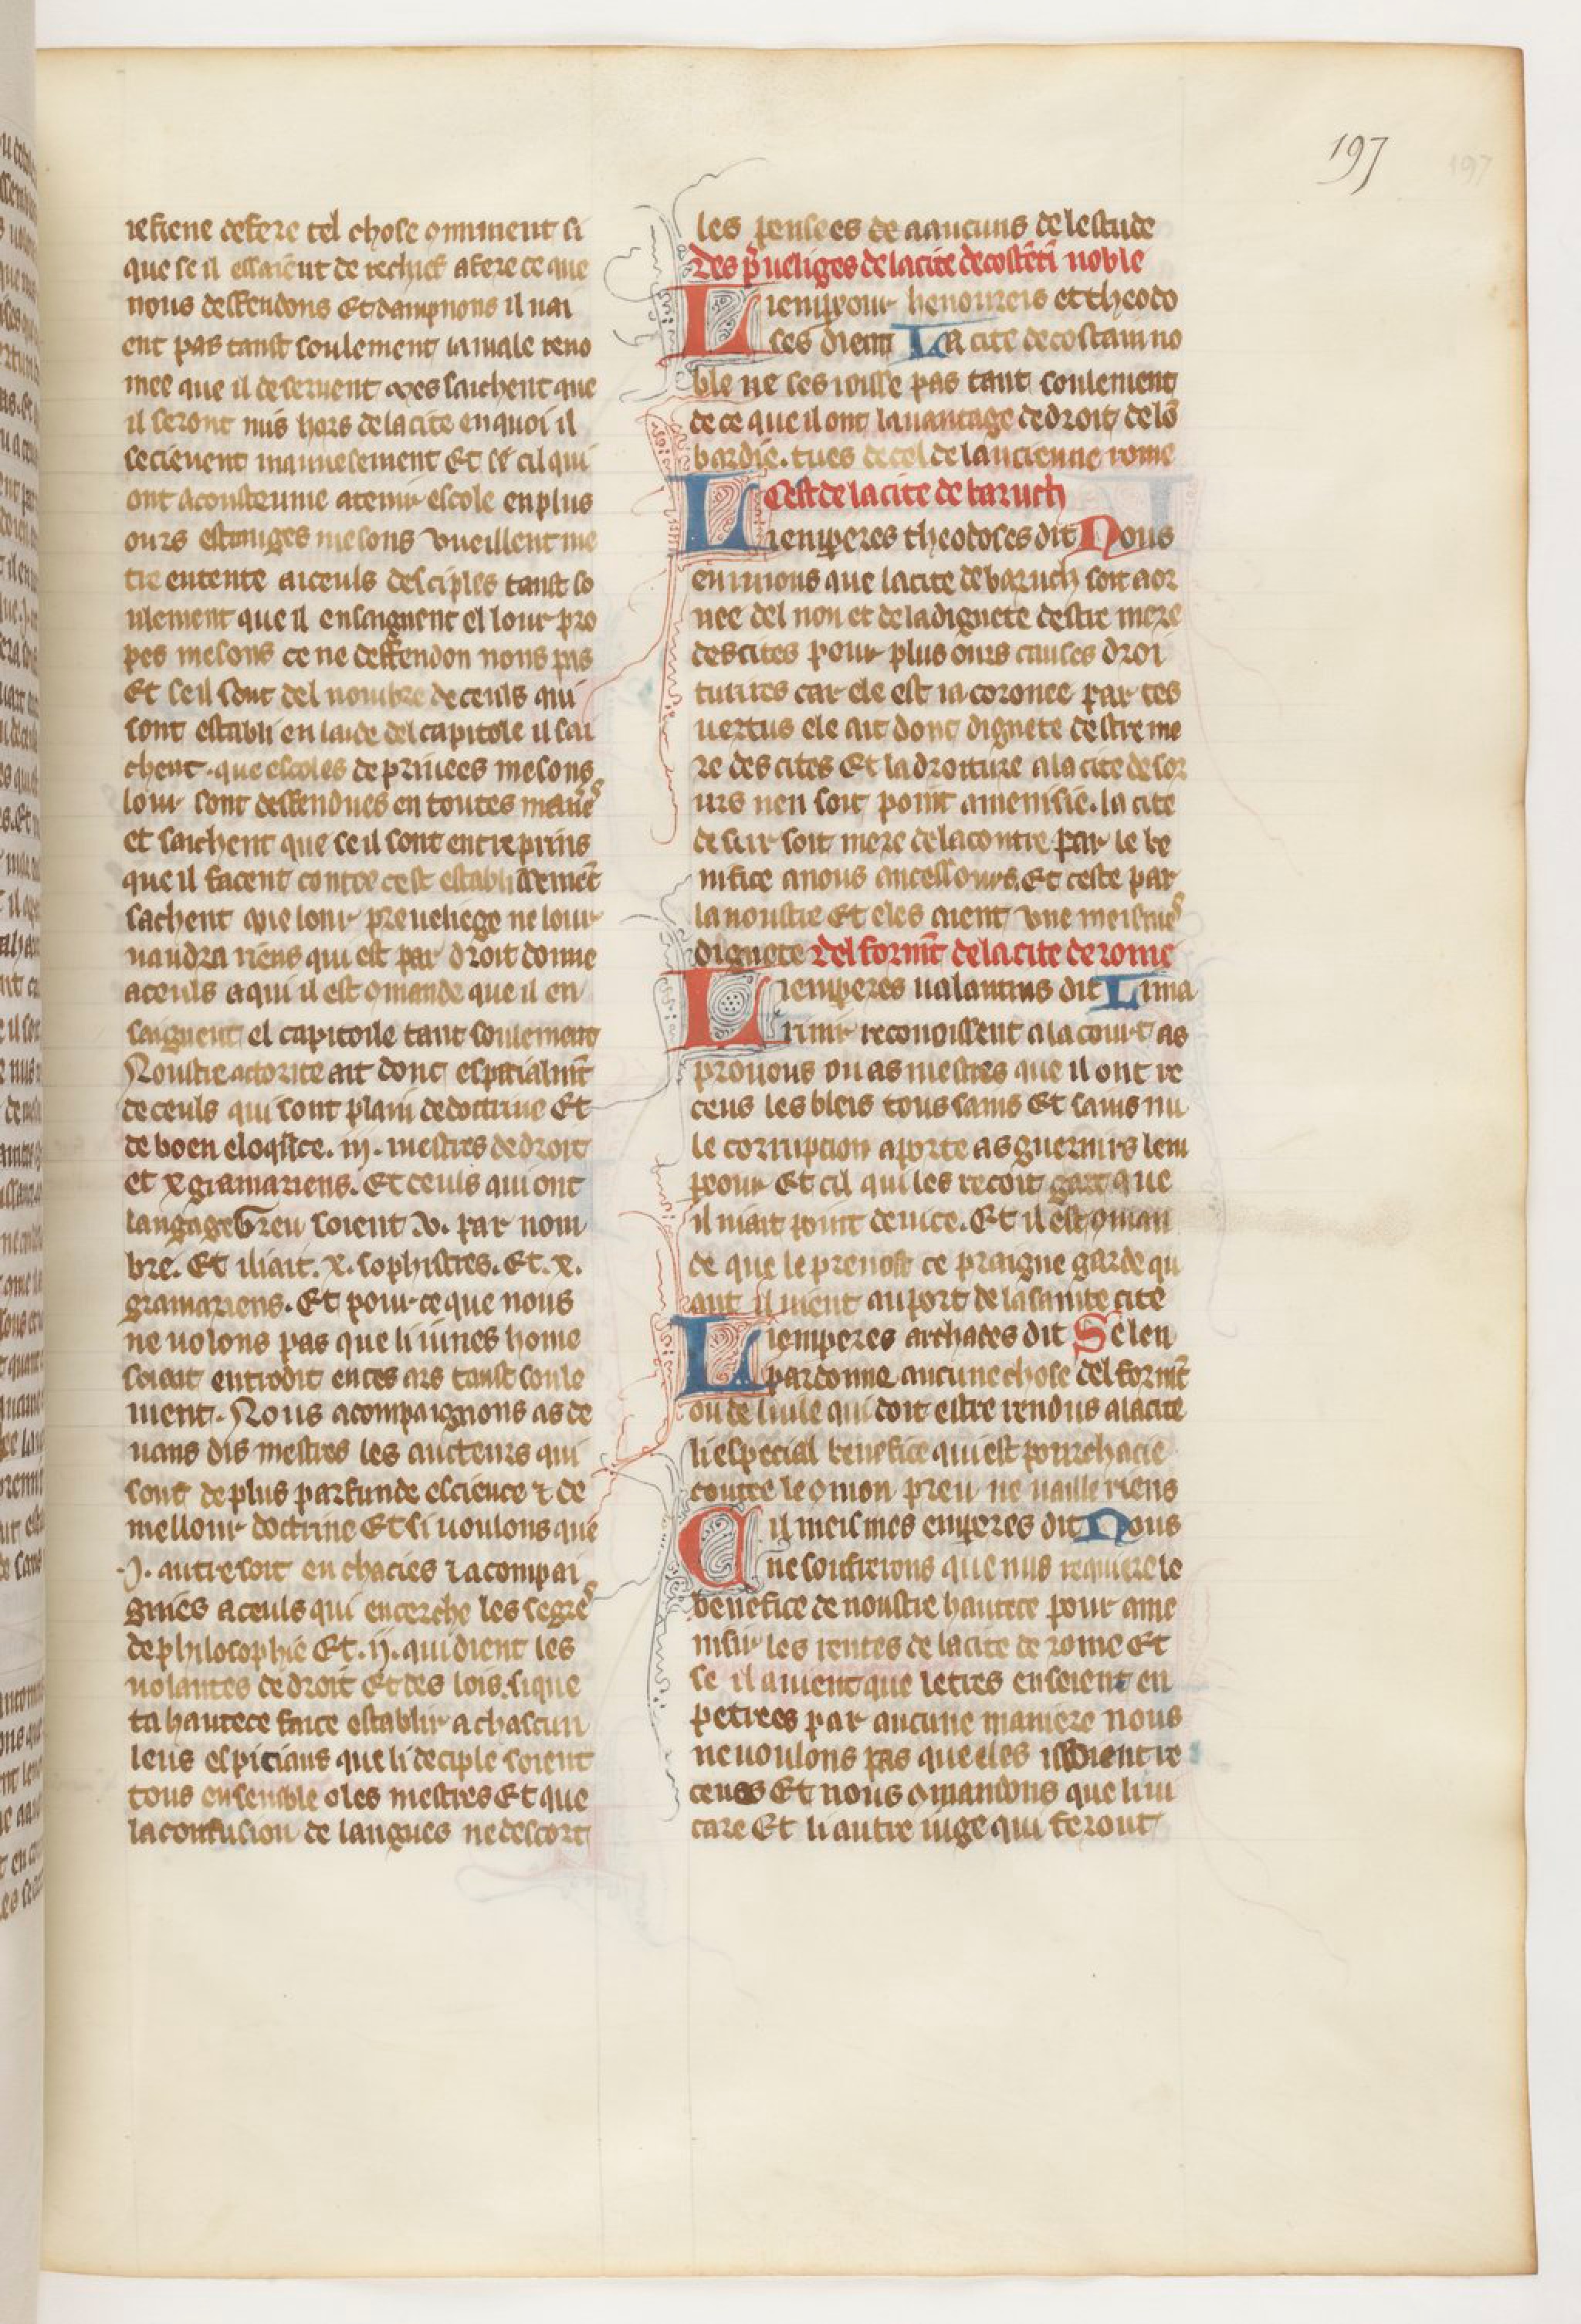 197
tefiene de fere tel chose omment si
que se il essaient de rechief a fere ce que
nous deffendons Et dampnons il nai
ent pas tant soulement la male reno
mee que il deseruent mes saichent que
il seront mis hors de la cite en quoi il
se cieuent mauuesement Et se cil qui
ont acousteume a tenir escole en plus
ours estranges mesons vueillent me
tre entente a iceuls desciples tant so
ulement que il ensaignent el lour pro
pes mesons ce ne deffendon nous pas
Et se il sont del nombre de ceuls qui
sont establi en laide del capitole il sai
chent que escoles de priuees mesons
lour sont deffendues en toutes manie̅s
et saichent que se il sont entreprins
que il facent contre cest establissemen̅t
sachent que lour preueliege ne lour
uaudra riens qui est par droit donne
a ceuls a qui il est omande que il en
saignent el capitoile tant soulement
Noustre actorite ait donc espicialmn̅t
de ceuls qui sont plain de doctrine Et
de boen eloquce. iij. mestres de droit
et x gramariens. Et ceuls qui ont
langage Greu soient v. par nom
bre. Et il iait. x. sophistres. Et. x.
gramariens. Et pour ce que nous
ne uolons pas que li iunes home
soient entrodit en ces ars tant soule
ment. Nous acompaignons as de
uans dis mestres les aucteurs qui
sont de plus parfunde escience ⁊ de
mellour doctrine Et si uoulons que
.j. autre soit enchacies ⁊ acompai
gnies a ceuls qui encerche les segres
de philosophie Et. ij. qui dient les
uolantes de droit Et des lois. si que
ta hautece face establir a chascun
leus espicians que li deciple soient
tous ensemble o les mestres Et que
la confusion de langues ne descort
les pensees de aaucuns de lestude
Des p̾ueliges de la cite de costen̅ti noble
Li empeour henoureis et theodo
ses dient La cite de costanino
ble ne ses ioisse pas tant soulement
de ce que il ont lauantage de droit de lo̅
bardie. tues de cel de lancienne rome
Cest de la cite de baruch
Li emperes theodoses dit Nous
enuions que la cite de baruch soit aor
nee del non et de la dignete destre mere
des cites pour plus ours causes droi
turires car ele est ia coronee par ces
uertus ele ait donc dignete destre me
re des cites Et la droiture a la cite de sor
urs nen soit point amenisie. la cite
de sur soit mere de la contre par le be
nifice a nous ancessours. Et ceste par
la noustre Et eles aient vne meismes
dignete Del formn̅t de la cite de rome
Li emperes ualantins dit Li ma
rinir reconoissent a la court as
prouous ou as mestres que il ont re
ceus les bleis tous sains Et sains nu
le corrupcion aporte as guernirs lem
peour Et cil qui les recoit gart que
il niait point de uice. Et il est oman
de que le preuost ce praigne garde qu
ant il uient au port de la sainte cite
Li emperes archades dit Se len
pardonne aucune chose del formn̅t
ou de luile qui doit estre rendus a la cite
li especial benefice qui est pourchacie
contre le omon preu ne uaille riens
Cil meismes emperes dit Nous
ne souferrons que nus requiere le
benefice de noustre hautece pour ame
nisir les rentes de la cite de rome Et
se il auient que letres en soient en
petrees par aucune maniere nous
ne uoulons pas que eles soient re
ceues Et nous omandons que li ui
caire Et li autre iuge qui feront